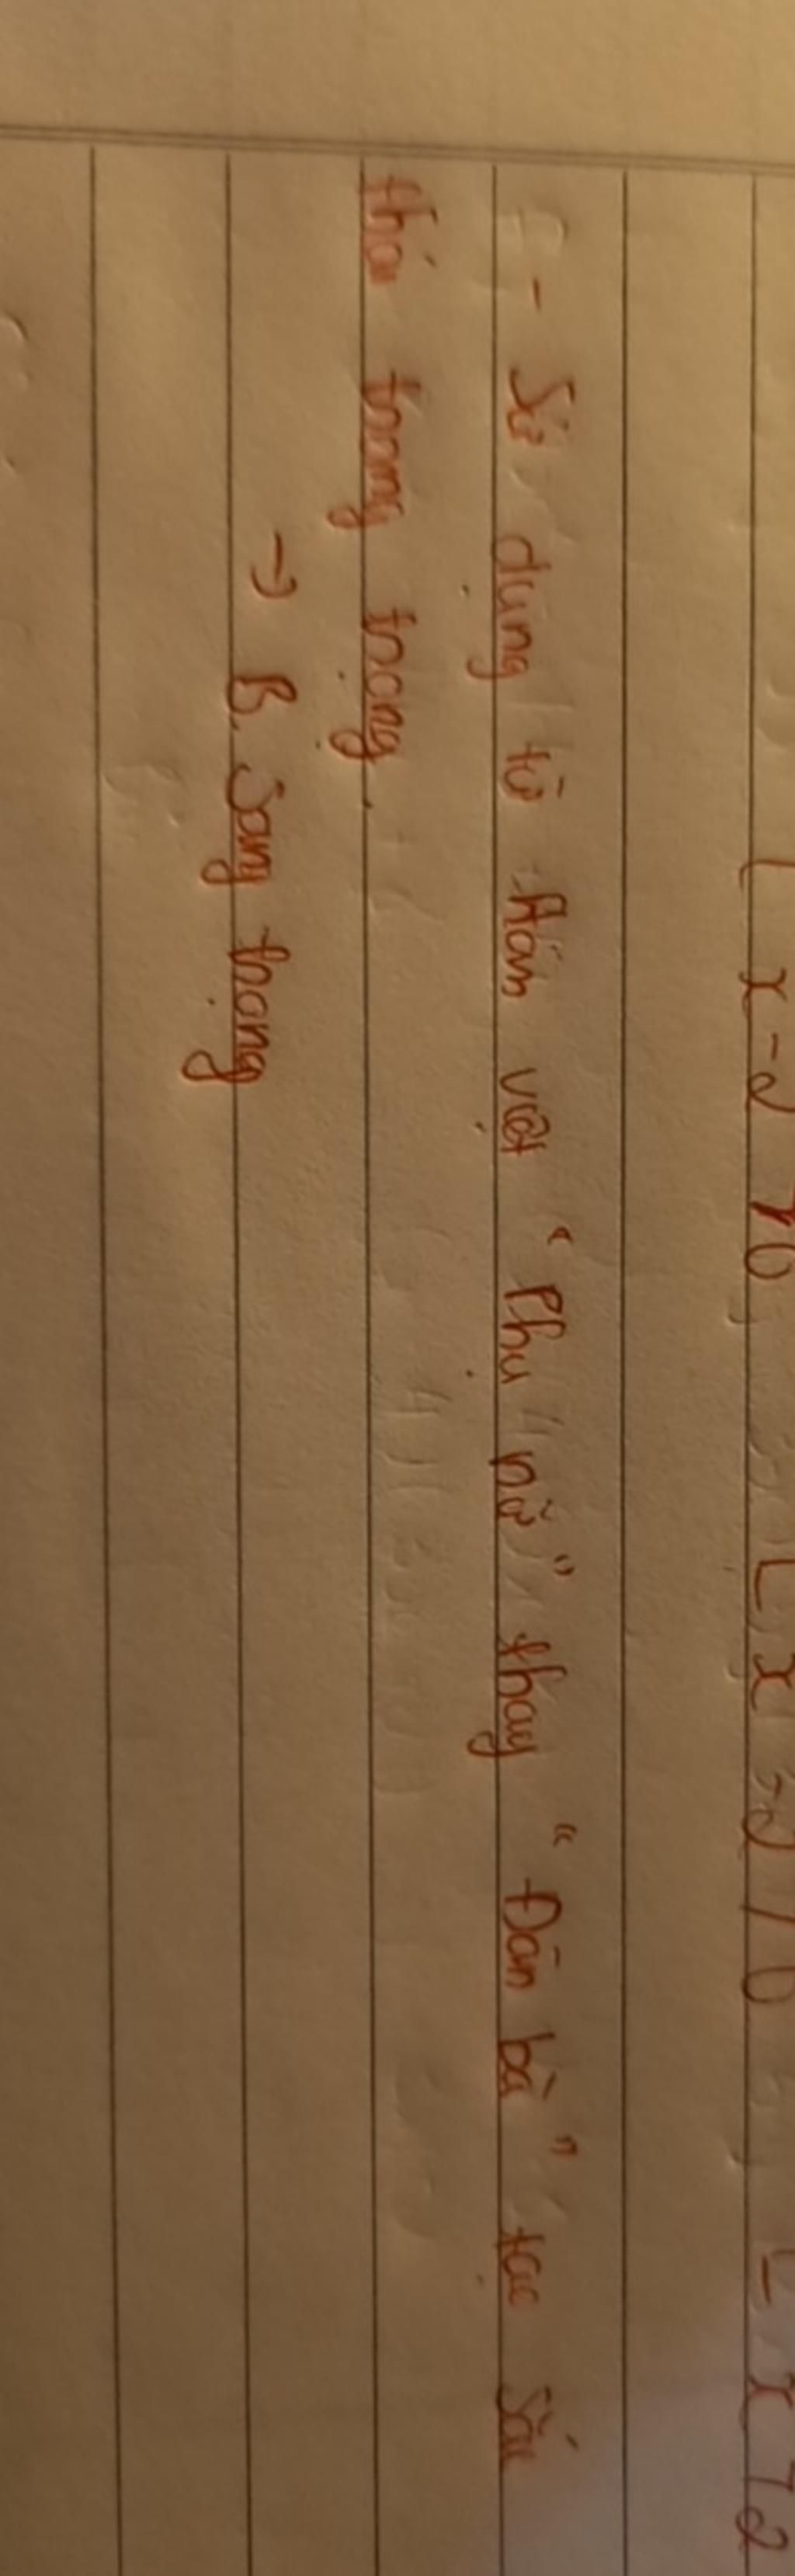 - Sử dụng từ Hán việt "Phụ nữ" thay "Đàn bà" tạo sắc
thái trang trọng.
→ B. Sang trọng